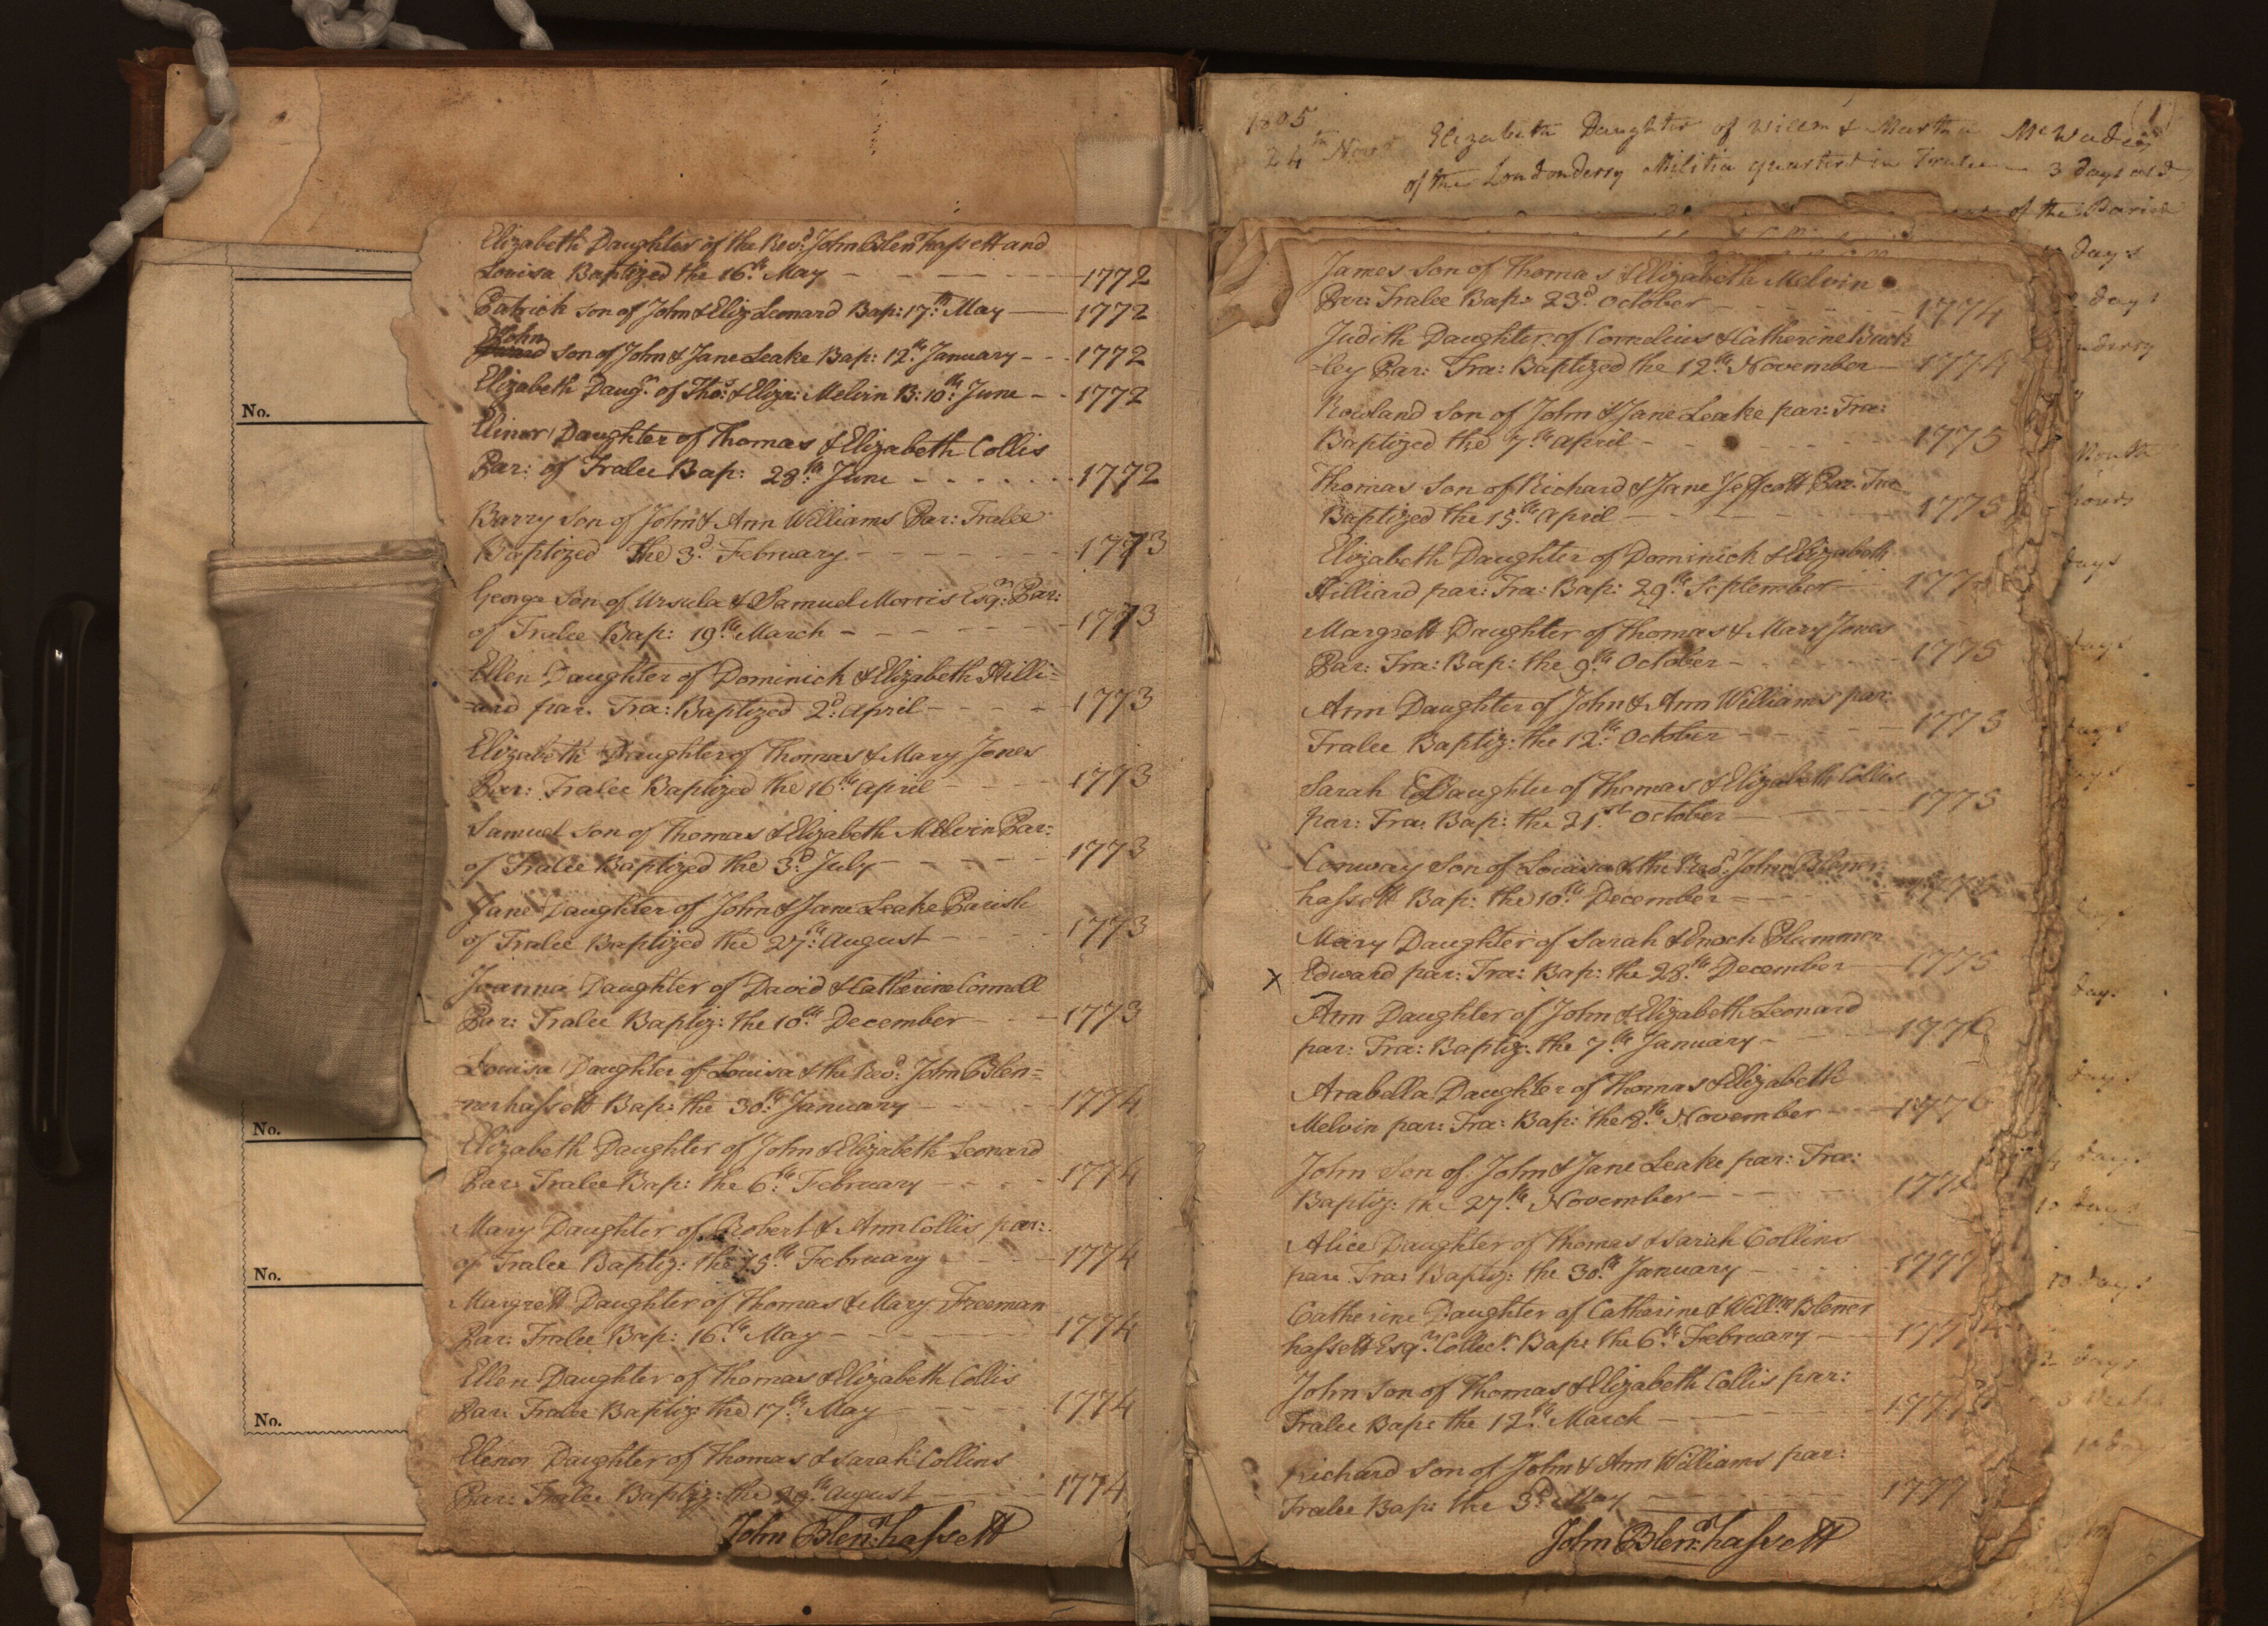 No.
No.
No.
No.
Elizabeth Daughter of the Revd. John Blenrhassett and
Louisa Baptized the 16th. May - - - - 1772
Patrick son of John & Eliz Leonard Bap: 17th. May — 1772
John
son of John & Jane Leake Bap: 12th. January - - - 1772
Elizabeth Daugr. of Thos: & Eliza: Melvin B: 10th: June - - 1772
Elinor Daughter of Thomas & Elizabeth Collis
Par: of Tralee Bap: 28th. June - - - - - - 1772
Barry son of John & Ann Williams Par: Tralee
Baptized the 3d. February - - - - - - 1773
George Son of Ursula & Samuel Morris Esqr: Par:
of Tralee Bap: 19th. March - - - - - - 1773
Ellen Daughter of Dominick & Elizabeth Hilli=
ard par. Tra: Baptized 2d: April - - - - 1773
Elizabeth Daughter of Thomas & Mary Jones
Par: Tralee Baptized the 16th. April - - - - 1773
Samuel Son of Thomas & Elizabeth Melvin Par:
of Tralee Baptized the 3d. July - - - - - 1773
Jane Daughter of John & Jane Leake Parish
of Tralee Baptized the 27th: August - - - - 1773
Joanna Daughter of David & Catherine Connell
Par: Tralee Baptiz: the 10th. December - - - 1773
Louisa Daughter of Louisa & the Revd: John Blen=
nerhassett Bap: the 30th. January - - - - 1774
Elizabeth Daughter of John & Elizabeth Leonard
Par: Tralee Bap: the 6th. February - - - - 1774
Mary Daughter of Robert & Ann Collis par:
of Tralee Baptiz: the 15th. February - - - - 1774
Margrett Daughter of Thomas & Mary Freeman
Par: Tralee Bap: 16th. May - - - - - 1774
Ellen Daughter of Thomas & Elizabeth Collis
Par: Tralee Baptiz: the 17th. May - - - - 1774
Elenor Daughter of Thomas & Sarah Collins
Par: Tralee Baptiz: the August - - - 1774
John Blenr:hassett
(1)
1805
24th Novr Elizabeth Daughter of Willm & Martha
of the Londonderry Militia quartered in Tralee — 3 days old
of the Parish
days
days
nderry
Month
hours
days
days
days
days
days
days
days
days
10 days
10 days
days
James Son of Thomas & Elizabeth Melvin
Par: Tralee Bap: 23d October - - - - 1774
Judith Daughter of Cornelius & Catherine Buck
=ley Par: Tra: Baptized the 12th. November — 1774
Rowland Son of John & Jane Leake par: Tra:
Baptized the 7th. April - - - - 1775
Thomas Son of Richard & Jane Jeffcott Par: Tra:
Baptized the 15th. April - - - - 1775
Elizabeth Daughter of Dominick & Elizabeth
Hilliard par: Tra: Bap: 29th. September — 1775
Margrett Daughter of Thomas & Mary Jones
Par: Tra: Bap: the 9th. October - - - - 1775
Ann Daughter of John & Ann Williams par:
Tralee Baptiz: the 12th. October - - - - 1775
Sarah Daughter of Thomas & Elizabeth Collis
par: Tra: Bap: the 21st. October - - - - 1775
Conway Son of Louisa & the Revd: John Blener
hassett Bap: the 10th. December - - - -
Mary Daughter of Sarah & Enoch Plummer
x Edward par: Tra: Bap: the 28th. December — 1775
Ann Daughter of John & Elizabeth Leonard
par: Tra: Baptiz: the 7th. January - - - 1776
Arabella Daughter of Thomas & Elizabeth
Melvin par: Tra: Bap: the 8th. November - - 1776
John Son of John & Jane Leake par: Tra:
Baptiz: the 27th. November - - - - 1776
Alice Daughter of Thomas & Sarah Collins
par: Tra: Baptiz: the 30th. January - - - - 1777
Catherine Daughter of Catherine & Willm Blener
hassett Esqr: Collecr. Bap: the 6th. February — 1777
John Son of Thomas & Elizabeth Collis par:
Tralee Bap: the 12th. March - - - - 1777
Richard Son of John & Ann Williams par:
Tralee Bap: the 3d. May — — — 1777
John Blenr:hassett